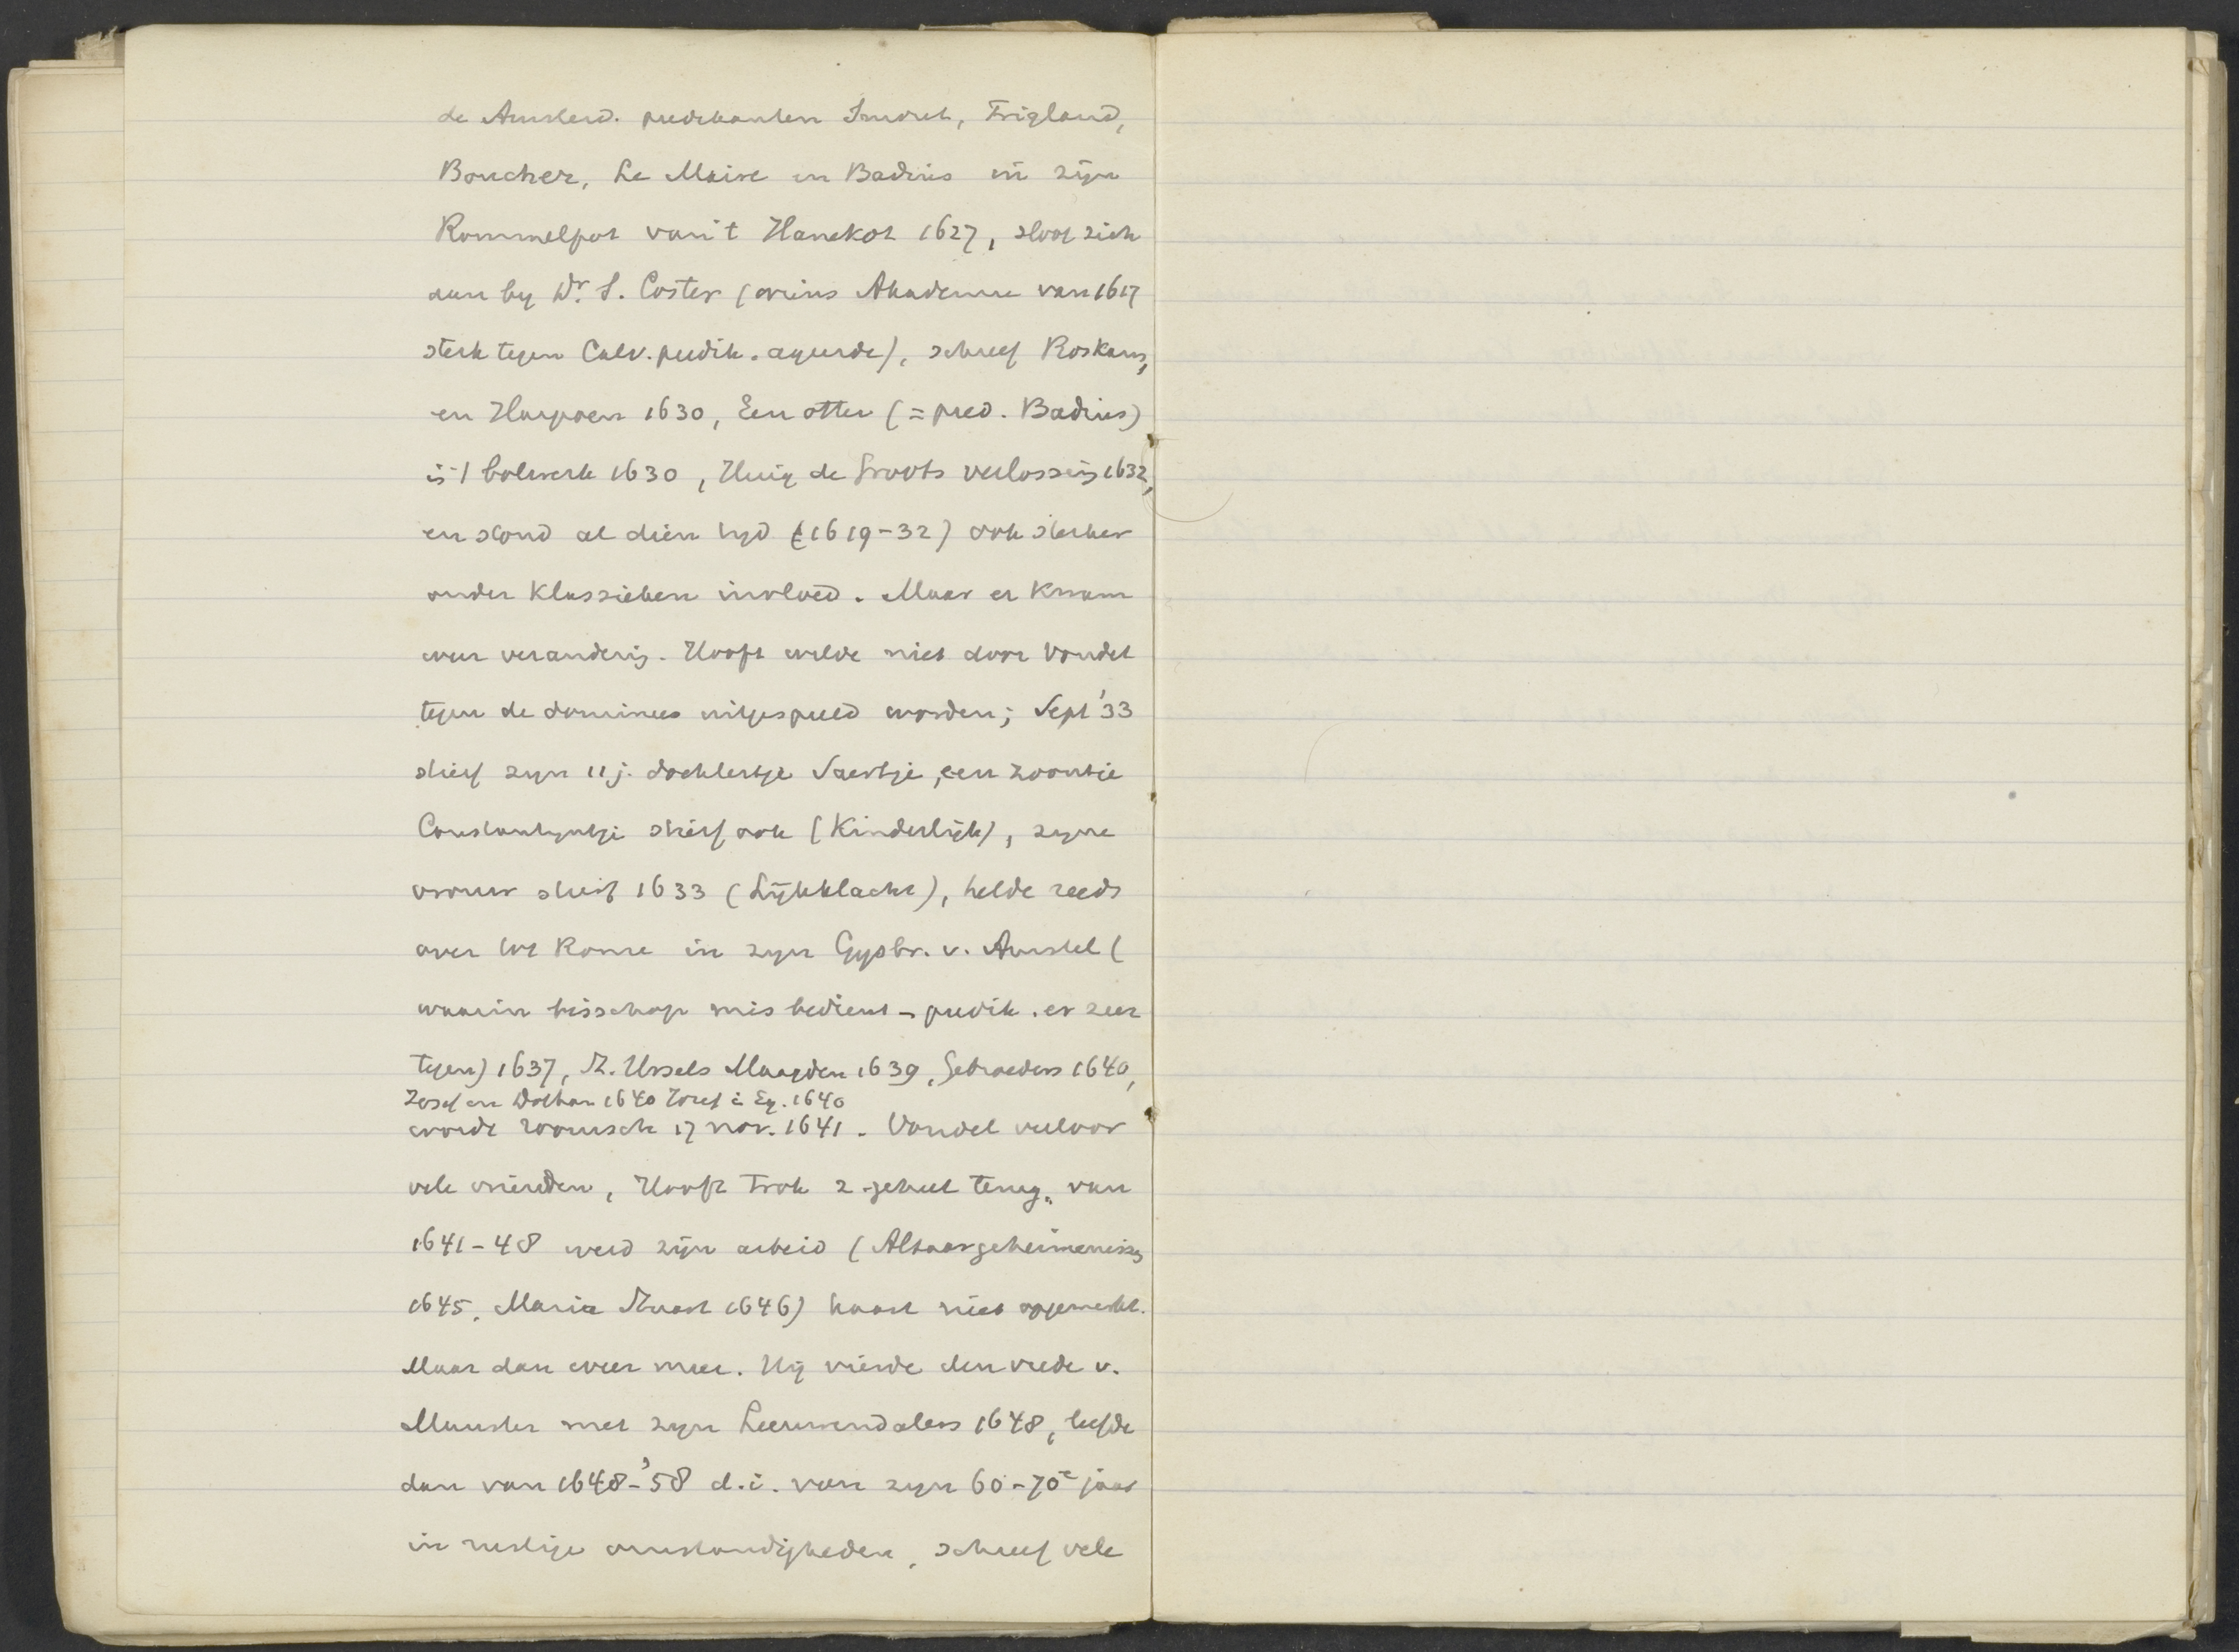 de Amsterd. predikanten Smout, Trigland,
Boucher, Le Maire en Badius in zijn
Rommelpot van 't Hanekot 1627, sloot zich
aan by Dr. S. Coster (wiens Akademie van 1617
sterk tegen Calv. predik. ageerde), schreef Roskam,
en Harpoen 1630, Een otter (= pred. Badius)
in 't bolwerk 1630, Huig de Groots verlossing 1632,
en stond al dien tyd (1619-32) ook sterker
onder Klassieken invloed. Maar er kwam
weer verandering. Hooft wilde niet door Vondel
tegen de dominees uitgespeeld worden; Sept '33
stierf zyn 11 j. dochtertje Saertje, een zoontje
Constantyntje stierf ook (Kinderlijk), zyne
vrouw stierf 1633 (Lijkklacht), helde reeds
over tot Rome in zyn Gysbr. v. Amstel (
waarin bisschop mis bedient – predik. er zeer
tegen) 1637, M. Ursels Maagden 1639, Gebroeders 1640,
Josef en Dothan 1640 Josef i. Eg. 1640
werde roomsch 17 nov. 1641. Vondel verloor
vele vrienden, Hooft trok z. geheel terug. van
1641-48 werd zijn arbeid (Altaargeheimenissen
1645, Maria Stuart 1646) haast niet opgemerkt.
Maar dan weer meer. Hij vierde den vrede v.
Munster met zyn Leeuwendalers 1648, leefde
dan van 1648-'58 d.i. van zyn 60-70e jaar
in rustige omstandigheden, schreef vele